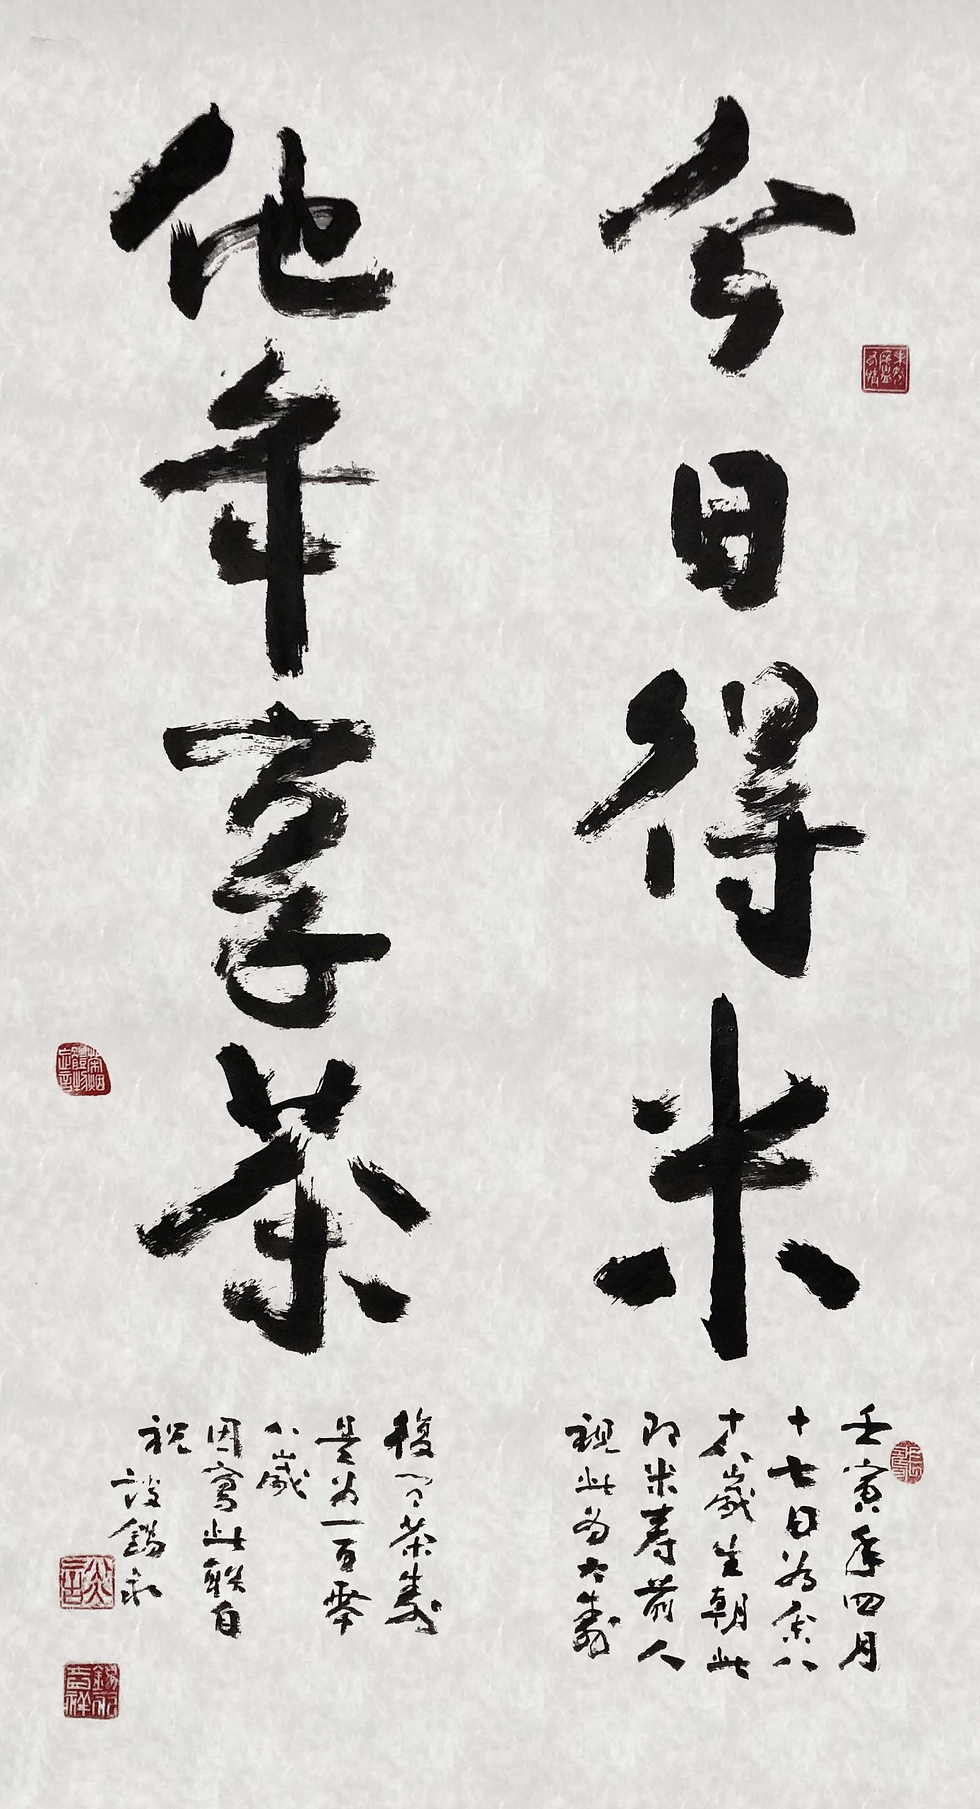 今日得米
他年享茶
壬寅年四月
十七日為余八
十八歲生朝此
即米壽前人
視此為大壽
復有茶壽
是為一百零
八歲
因寫此聯自
祝
談錫永